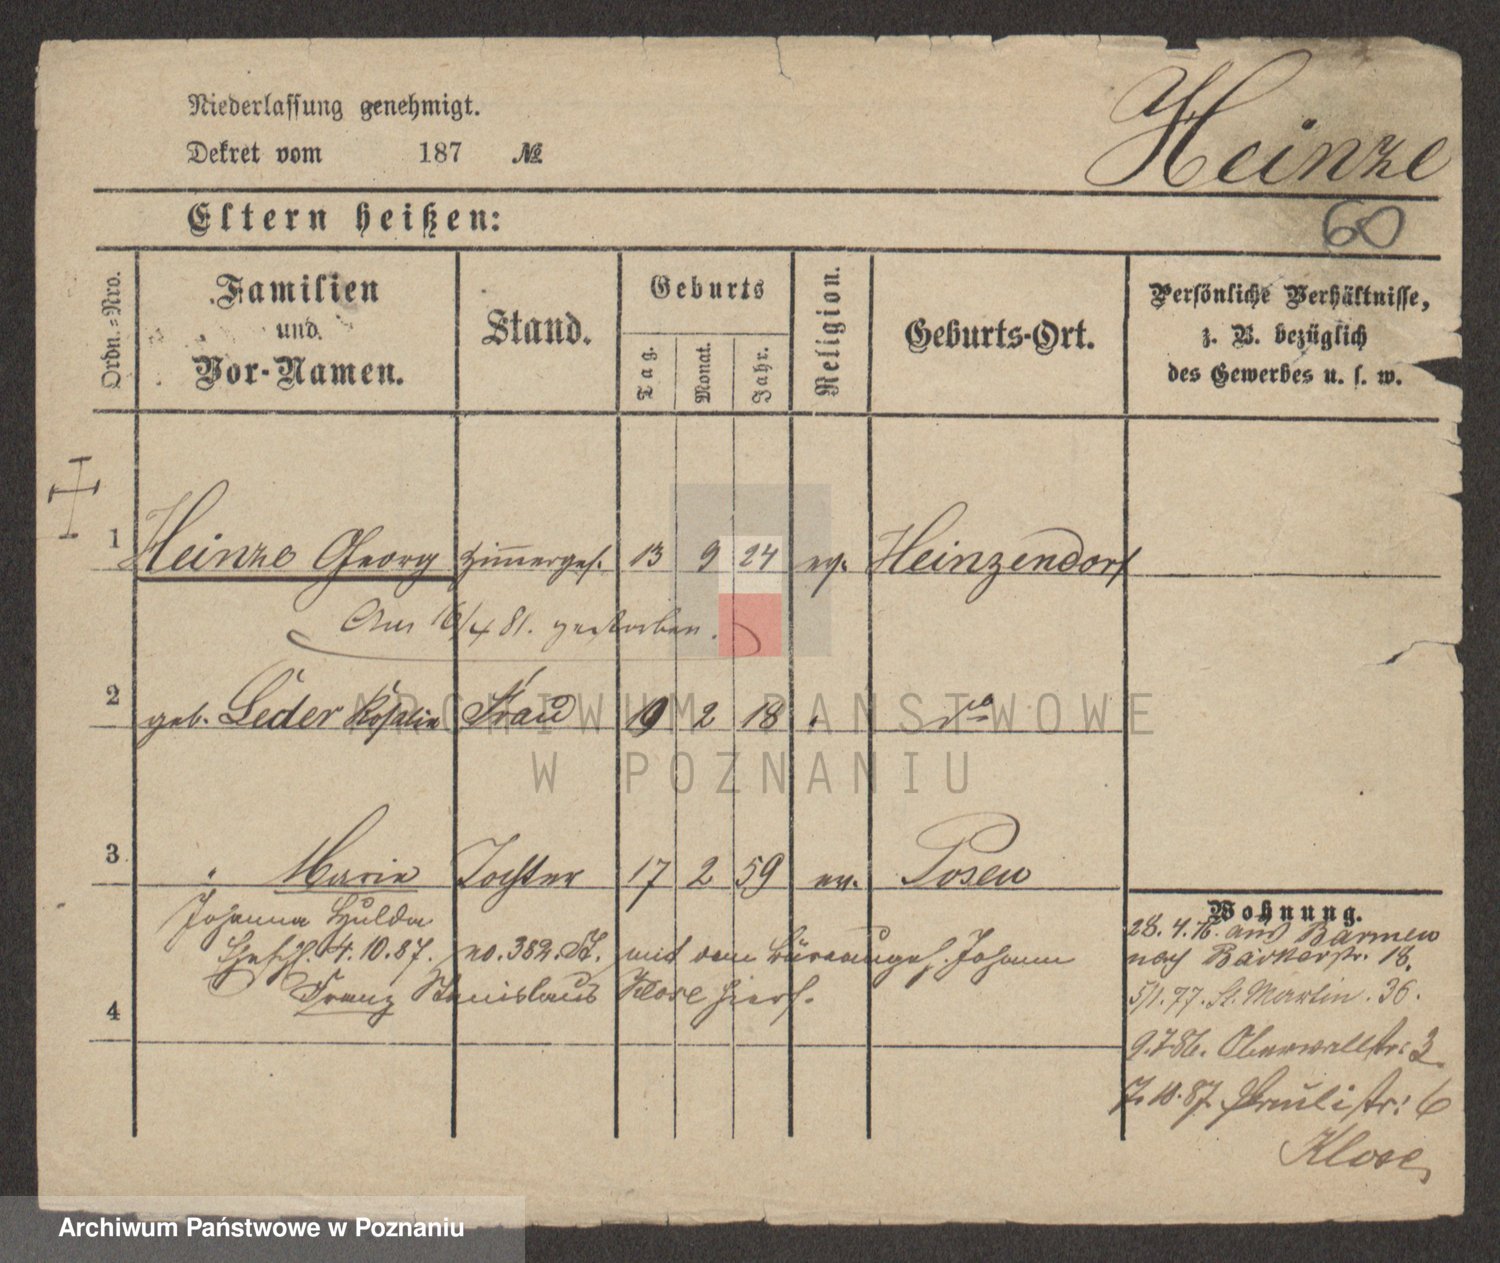 Niederlassung genehmigt.
Dekret vom 187 №
Heinze
Eltern heißen:
60
Ordn.-Nro.
Familien
und
Vor-Namen.
Stand.
Geburts
Tag.
Monat.
Jahr.
Religion.
Geburts-Ort.
Persönliche Verhältnisse,
z. B. bezüglich
des Gewerbes u. s. w.
1 Heinze Georg Zimmerges. 13 9 24 ev. Heinzendorf
Am 16/4 81. gestorben.
2 geb. Leder Rosalie Frau 19 2 18 " do
3 " Marie Tochter 17 2 59 ev. Posen
Johanna Hulda
4.10.87. no. 382. St. mit dem Büreaugeh. Johann
Franz Stanislaus Klose hiers.
4
Wohnung.
28. 4. 76. aus Barmen
nach Bäckerstr. 18.
5/1. 77. St. Martin. 36.
9.7.86. Oberwallstr: 3
7.10.87. Paulistr: 6
Klose
ARCHIWUM PAŃSTWOWE
W POZNANIU
Archiwum Państwowe w Poznaniu